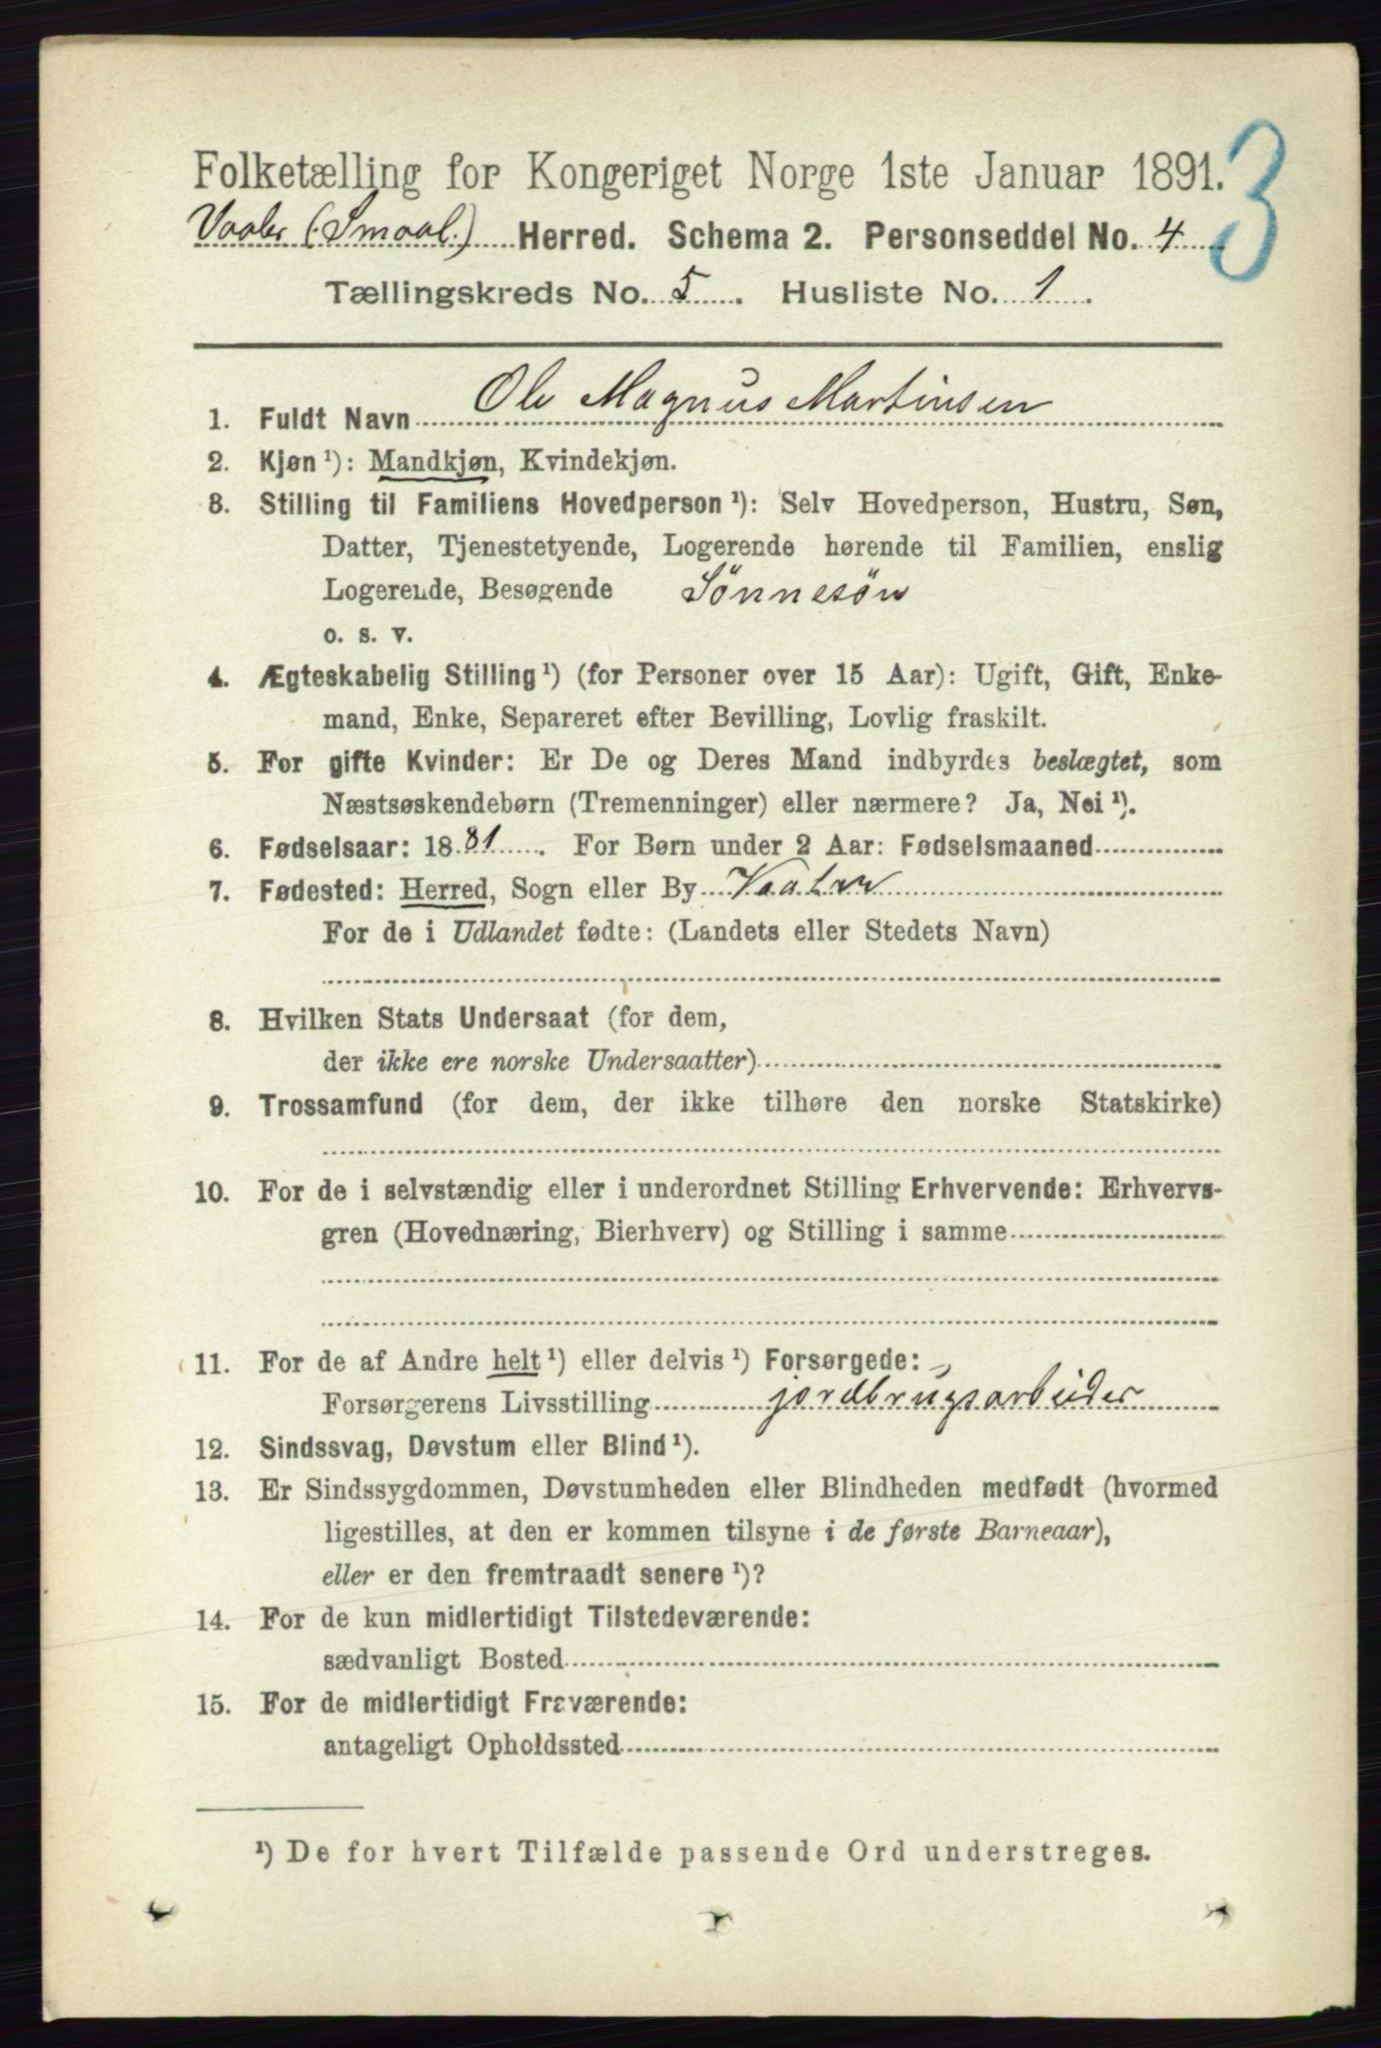 Folketælling for Kongeriget Norge 1ste Januar 1891.
3
Vaaler (Smaal.) Herred. Schema 2. Personseddel No. 4
Tællingskreds No. 5. Husliste No. 1.
1. Fuldt Navn Ole Magnus Martinsen
2. Kjøn ¹): Mandkjøn, Kvindekjøn.
3. Stilling til Familiens Hovedperson ¹): Selv Hovedperson, Hustru, Søn,
Datter, Tjenestetyende, Logerende hørende til Familien, enslig
Logerende, Besøgende Sönnesön
o. s. v.
4. Ægteskabelig Stilling ¹) (for Personer over 15 Aar): Ugift, Gift, Enke-
mand, Enke, Separeret efter Bevilling, Lovlig fraskilt.
5. For gifte Kvinder: Er De og Deres Mand indbyrdes beslægtet, som
Næstsøskendebørn (Tremenninger) eller nærmere? Ja, Nei ¹).
6. Fødselsaar: 1881. For Børn under 2 Aar: Fødselsmaaned
7. Fødested: Herred, Sogn eller By Vaaler
For de i Udlandet fødte: (Landets eller Stedets Navn)
8. Hvilken Stats Undersaat (for dem,
der ikke ere norske Undersaatter)
9. Trossamfund (for dem, der ikke tilhøre den norske Statskirke)
10. For de i selvstændig eller i underordnet Stilling Erhvervende: Erhvervs-
gren (Hovednæring, Bierhverv) og Stilling i samme
11. For de af Andre helt ¹) eller delvis ¹) Forsørgede:
Forsørgerens Livsstilling jordbrugsarbeider
12. Sindssvag, Døvstum eller Blind ¹).
13. Er Sindssygdommen, Døvstumheden eller Blindheden medfødt (hvormed
ligestilles, at den er kommen tilsyne i de første Barneaar),
eller er den fremtraadt senere ¹)?
14. For de kun midlertidigt Tilstedeværende:
sædvanligt Bosted
15. For de midlertidigt Fraværende:
antageligt Opholdssted
¹) De for hvert Tilfælde passende Ord understreges.